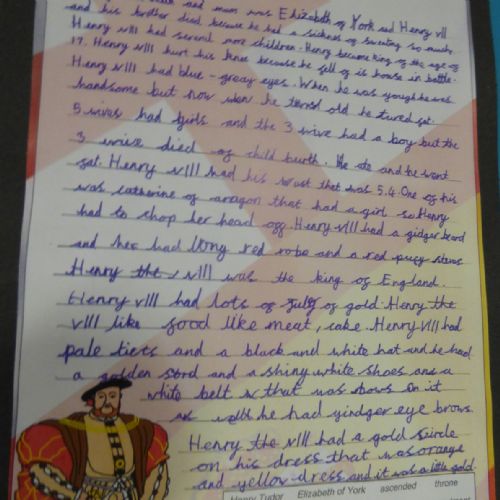 and mum was Elizabeth of York and Henry vII
and his brother died because he had a sickness of sweating so much.
Henry vIII had several more children. Henry became king at the age of
17. Henry vIII hurt his knee because he fell of is house in battle.
Henry vIII had blue - greay eyes. When he was yough he was
handsome but now when he turnd old he tured fat.
5 wives had girls and the 3 wive had a boy but the
3 wive died of child burth. He ate and he went
fat. Henry vIII had his wust that was 5.4. One of his
was catherine of aragon that had a girl so Henry
had to chop her head off. Henry vIII had a gidger beard
and hes had long red robe and a red
Henry the vIII was the king of England.
Henry vIII had lots of of gold. Henry the
vIII like food like meat, cake. Henry vIII had
pale tiets and a black and white hat and he had
a golden sord and a shiny white shoes and a
white belt that was bows on it
as well he had gindger eye brows.
Henry the vIII had a gold sircle
on his dress that was orange
and yellow dress and it was a little gold
Henry Tudor Elizabeth of York ascended throne